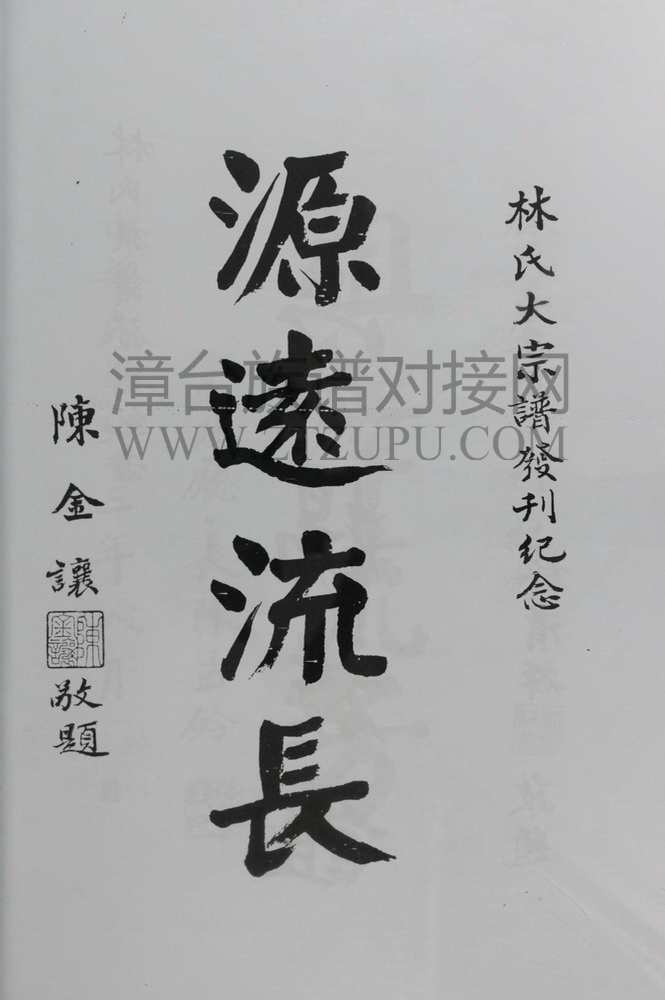 林氏大宗譜發刊纪念
源遠流長
陳金讓
敬題
漳台族谱对接网
WWW.ZTZUPU.COM